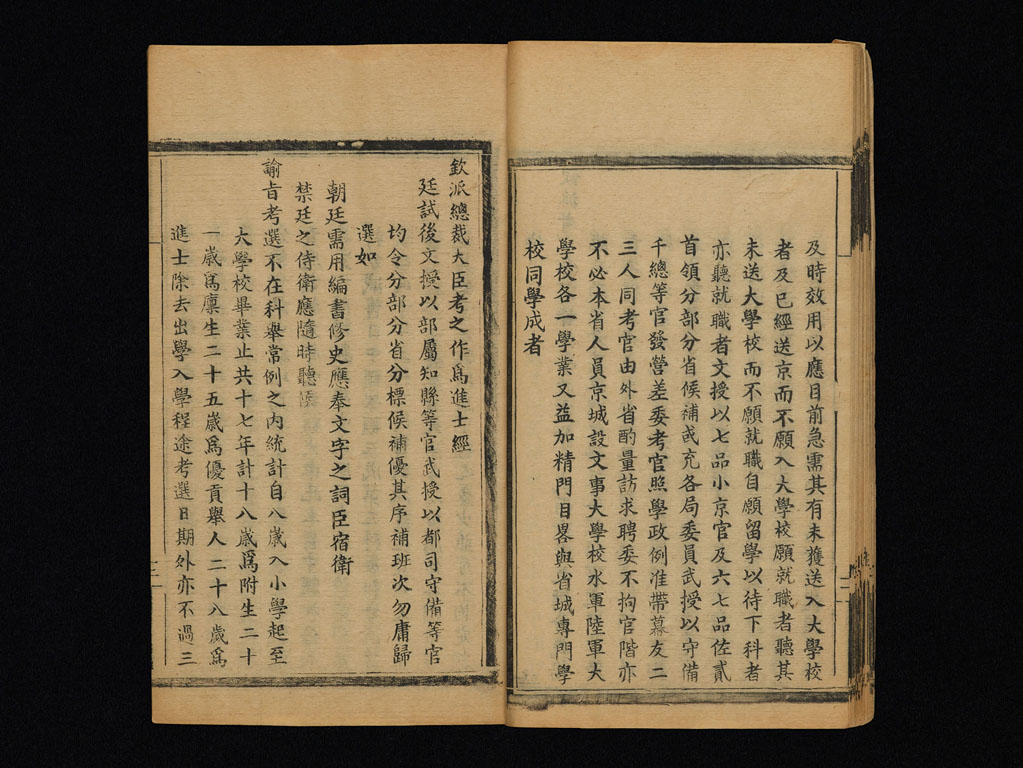 及時效用以應目前急需其有未獲送入大學校
者及已經送京而不願入大學校願就職者聽其
未送大學校而不願就職自願留學以待下科者
亦聽就職者文授以七品小京官及六七品佐貳
首領分部分省候補或充各局委員武授以守備
千總等官發營差委考官照學政例准帶幕友二
三人同考官由外省酌量訪求聘委不拘官階亦
不必本省人員京城設文事大學校水軍陸軍大
學校各一學業又益加精門目畧與省城專門學
校同學成者
欽派總裁大臣考之作爲進士經
廷試後文授以部屬知縣等官武授以都司守備等官
均令分部分省分標候補優其序補班次勿庸歸
選如
朝廷需用編書修史應奉文字之詞臣宿衛
禁廷之侍衛應隨時聽候
諭旨考選不在科舉常例之內統計自八歲入小學起至
大學校畢業止共十七年計十八歲爲附生二十
一歲爲廩生二十五歲爲優貢舉人二十八歲爲
進士除去出學入學程途考選日期外亦不過三
二
三